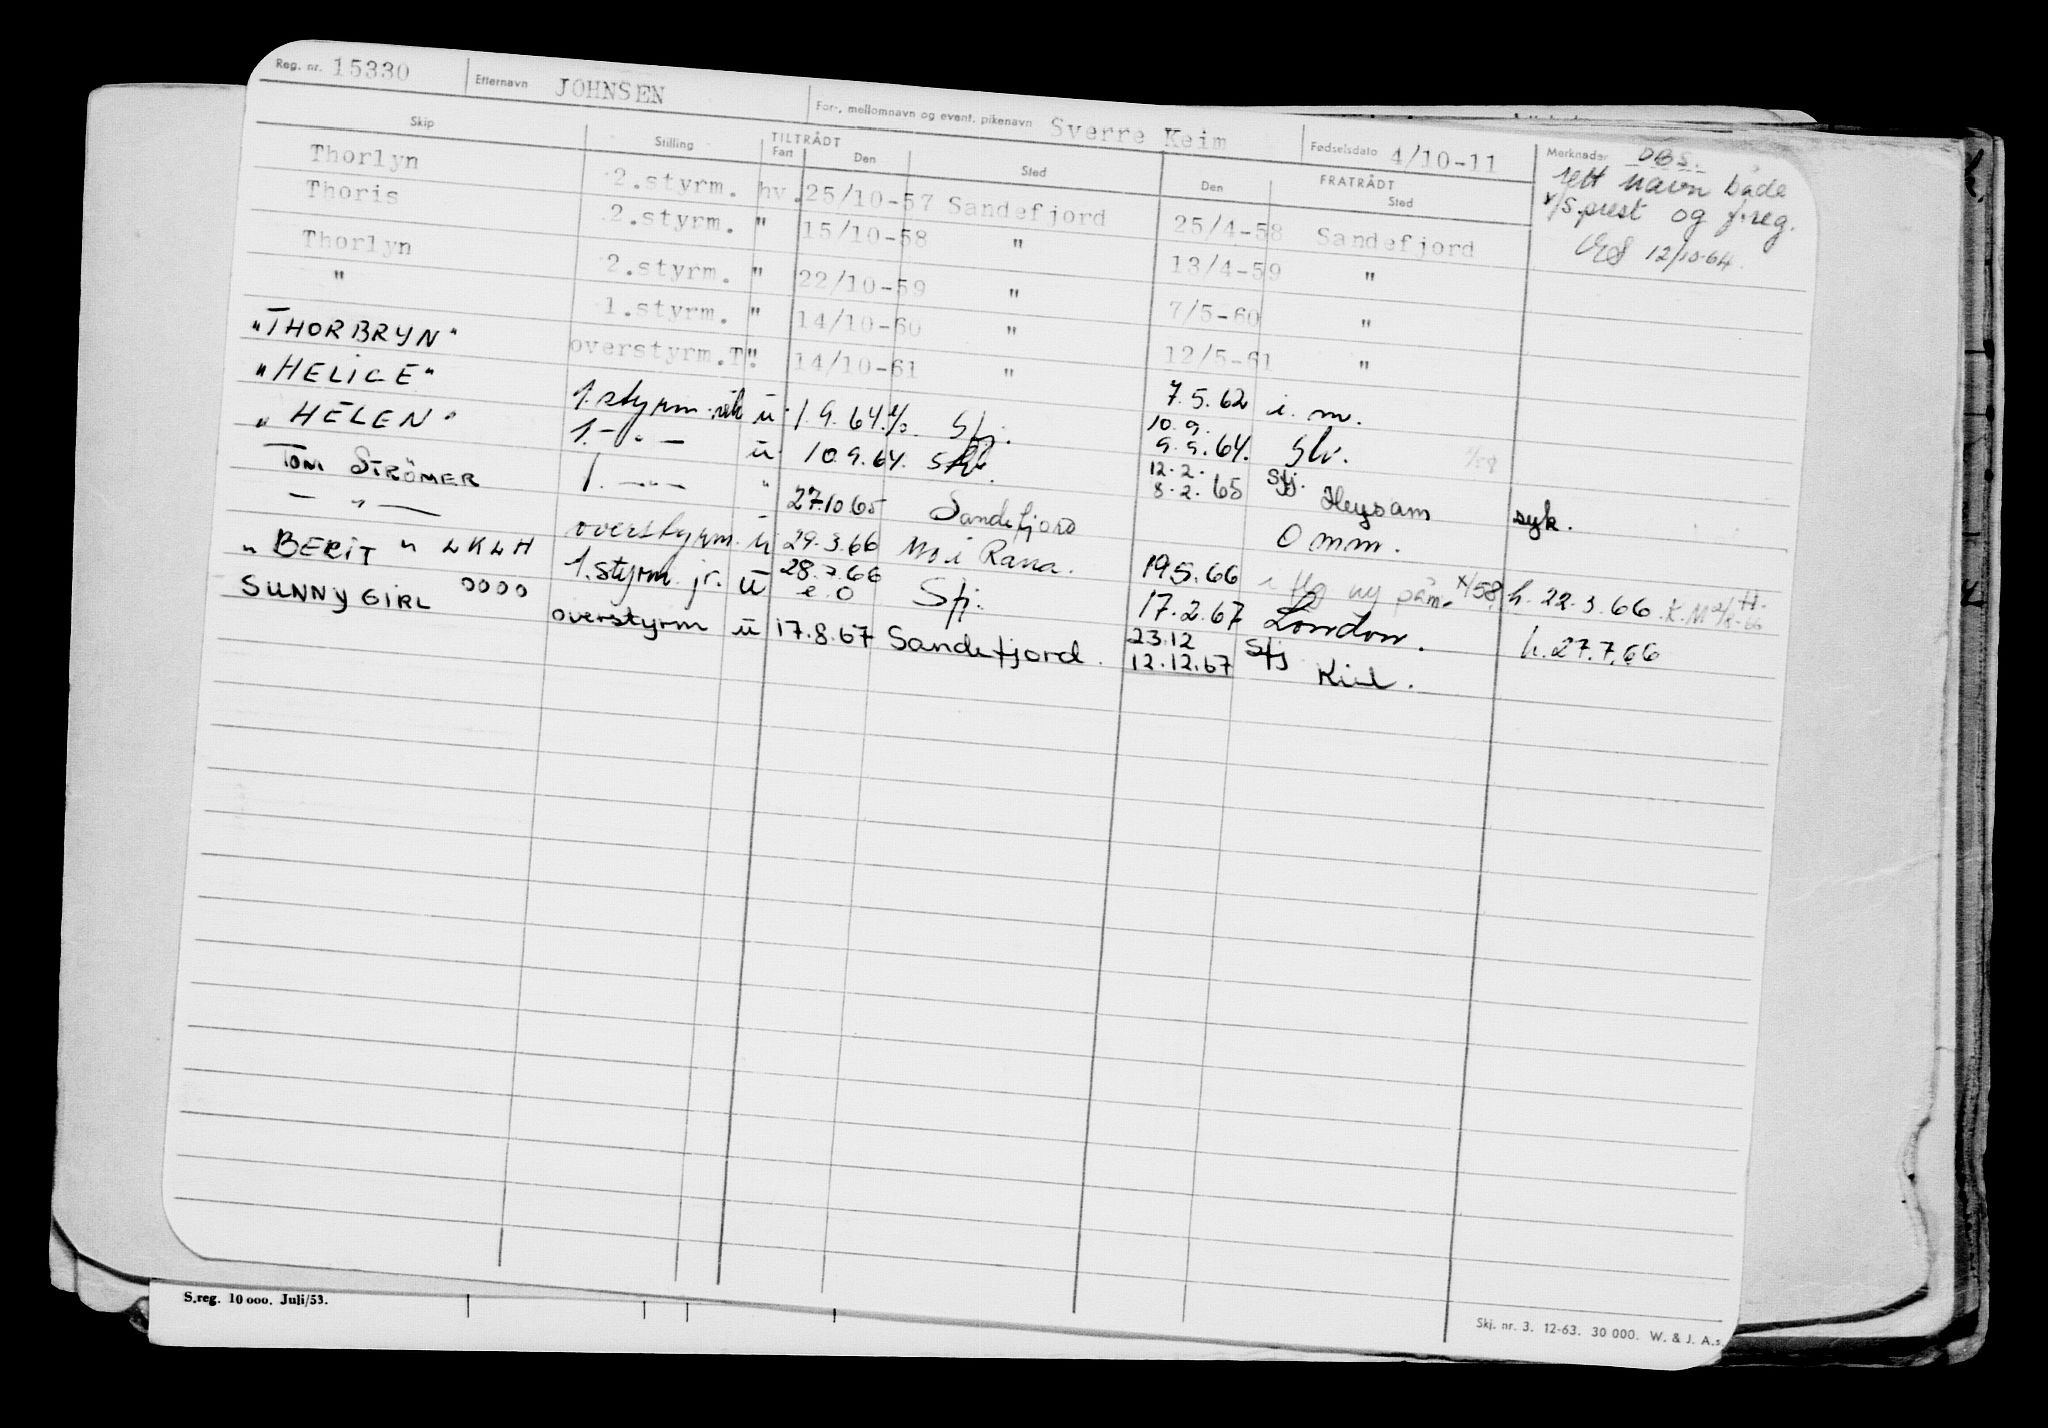 Reg. nr. 15330 Etternavn JOHNSEN For-, mellomnavn og event. pikenavn Sverre Keim Fødselsdato 4/10-11 Merknader OBS.
rett navn både
v/S.prest og f.reg.
12/10-64.
Skip Stilling TILTRÅDT Fart Den Sted FRATRÅDT Den Sted
Thorlyn 2.styrm. hv. 25/10-57 Sandefjord 25/4-58 Sandefjord
Thoris 2.styrm. " 15/10-58 " 13/4-59 "
Thorlyn 2.styrm. " 22/10-59 " 7/5-60 "
" 1.styrm. " 14/10-60 " 12/5-61 "
"THORBRYN" overstyrm.T". 14/10-61 " 7.5.62 i. m.
"HELICE" 1.styrm. u. 1.9.64. Sfj. 10.9. 9.9.64. Slv.
"HELEN" 1. - " - u. 10.9.64. 12.2. 8.2.65 Sfj. Heysam syk.
TOM STRÖMER 1. -"- " 27.10.65 Sandefjord Omm.
- " - overstyrm. u 29.3.66 Mo i Rana. 19.5.66 ny påm. x/58 h. 22.3.66.
"BERIT" LKLH 1.styrm. jr. u 28.7.66 e.O Sfj. 17.2.67 London. h. 27.7.66
SUNNY GIRL OOOO overstyrm u 17.8.67 Sandefjord. 23.12 12.12.67 Sfj Kiel.
S.reg. 10 000. Juli/53.
Skj. nr. 3. 12-63. 30 000. W. & J. A.s